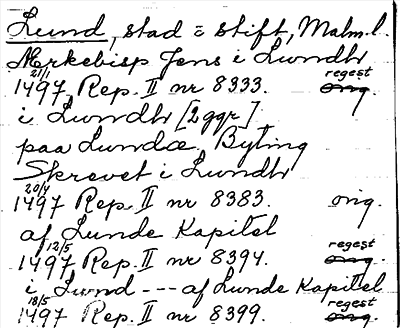 Lund, stad = stift, Malm.l.
Ærkebisp Jens i Lundh
21/1 regest
1497 Rep. II nr 8333. orig.
i Lundh [2 ggr]
paa Lundæ Byting
Skrevet i Lundh
20/4
1497 Rep. II nr 8383. orig.
af Lunde Kapitel
12/5 regest
1497 Rep. II nr 8394. orig.
i Lund --- af Lunde Kapitel
18/5 regest
1497 Rep. II nr 8399. orig.